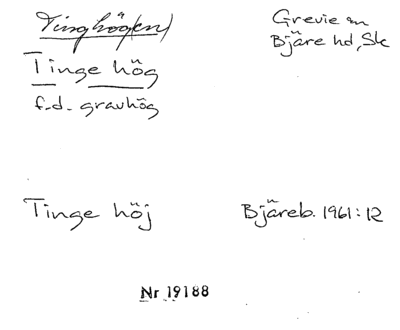 Tinghög(en)
Grevie sn
Bjäre hd, Sk
Tinge hög
f.d. gravhög
Tinge höj
Bjäreb. 1961:12
Nr 19188